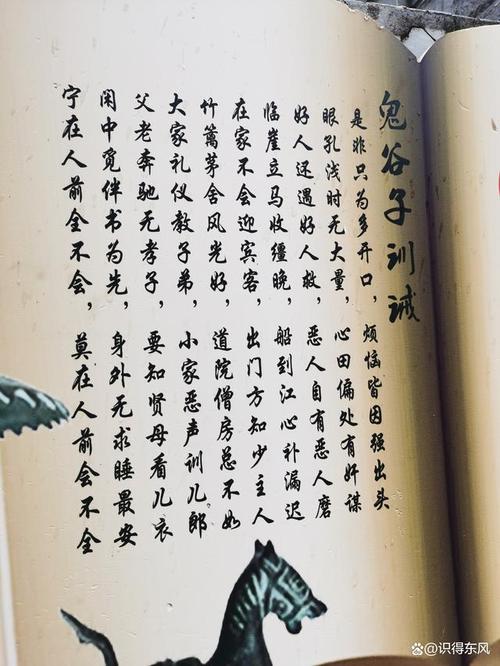 鬼谷子训诫
是非只为多开口，烦恼皆因强出头
眼孔浅时无大量，心田偏处有奸谋
好人还遇好人救，恶人自有恶人磨
临崖立马收缰晚，船到江心补漏迟
在家不会迎宾客，出门方知少主人
竹篱茅舍风光好，道院僧房总不如
大家礼仪教子弟，小家恶声训儿郎
父老奔驰无孝子，要知贤母看儿衣
闲中觅伴书为先，身外无求睡最安
宁在人前全不会，莫在人前会不全
识得东风